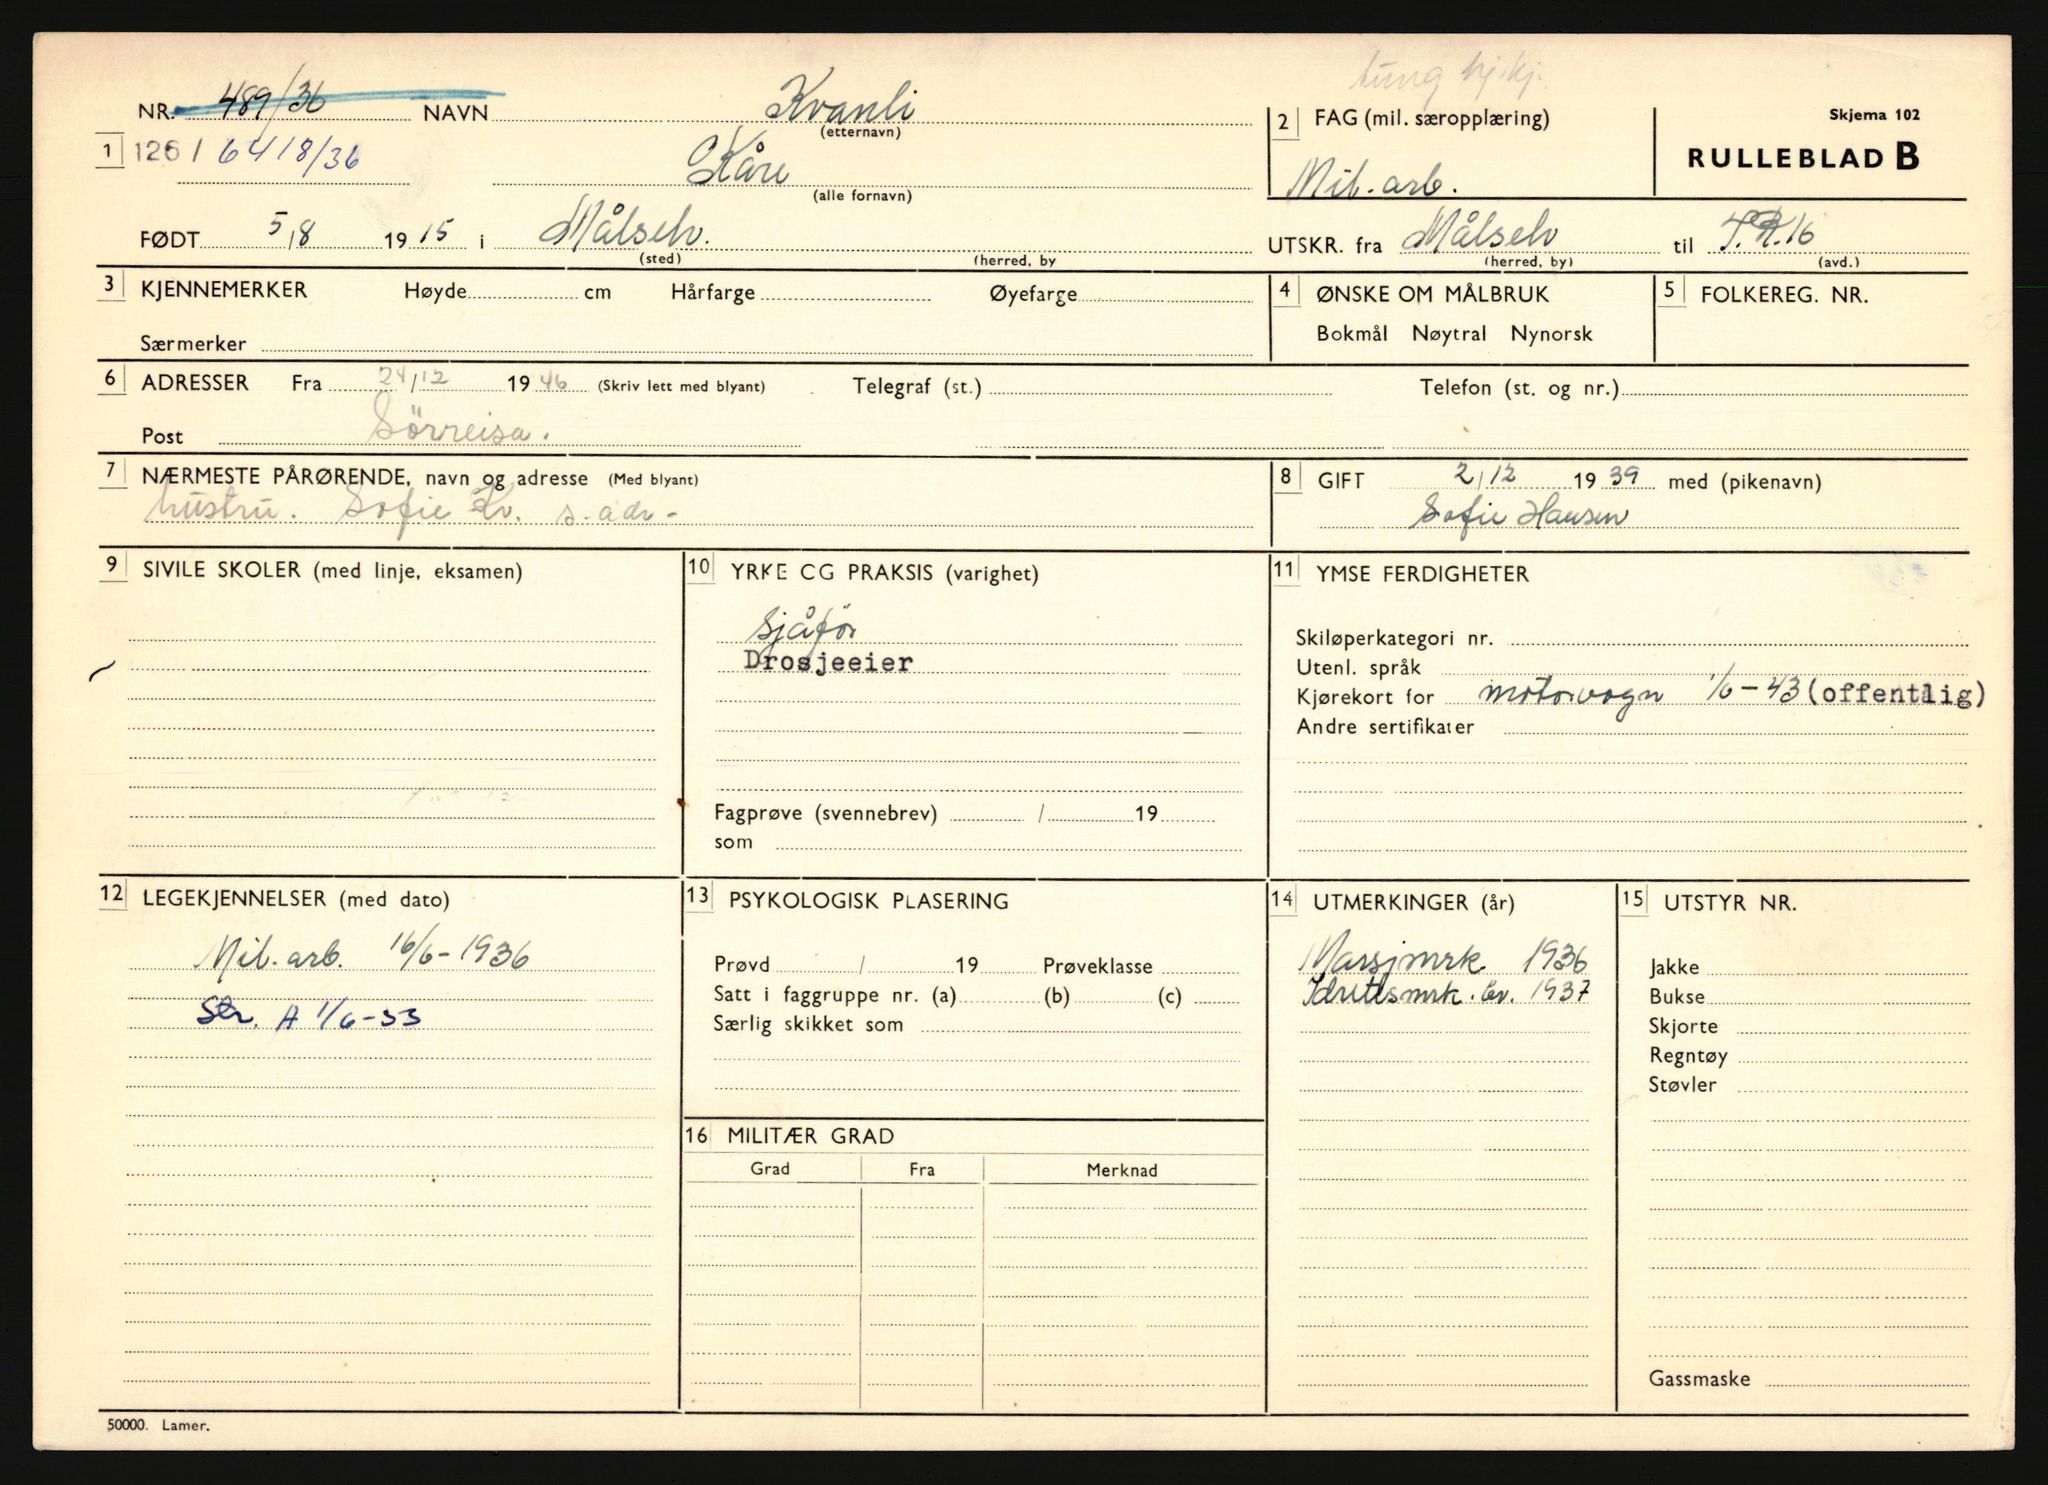 tung hj.kj.
NR. 489/36 NAVN Kvanli
(etternavn)
2 FAG (mil. særopplæring)
Skjema 102
RULLEBLAD B
1 126 / 6418/36 Kåre
(alle fornavn)
Mil. arb.
FØDT 5/8 1915 i Målselv.
(sted) (herred, by
UTSKR. fra Målselv til I.R.16
(herred, by) (avd.)
3 KJENNEMERKER Høyde cm Hårfarge Øyefarge
Særmerker
4 ØNSKE OM MÅLBRUK
Bokmål Nøytral Nynorsk
5 FOLKEREG. NR.
6 ADRESSER Fra 24/12 1946 (Skriv lett med blyant) Telegraf (st.) Telefon (st. og nr.)
Post Sörreisa.
7 NÆRMESTE PÅRØRENDE, navn og adresse (Med blyant)
hustru. Sofie Kv. s. adr-
8 GIFT 2/12 1939 med (pikenavn)
Sofie Hansen
9 SIVILE SKOLER (med linje, eksamen)
10 YRKE CG PRAKSIS (varighet)
sjåfør
Drosjeeier
Fagprøve (svennebrev) / 19
som
11 YMSE FERDIGHETER
Skiløperkategori nr.
Utenl. språk
Kjørekort for motorvogn 1/6-43 (offentlig)
Andre sertifikater
12 LEGEKJENNELSER (med dato)
Mil. arb. 16/6-1936
Str. A 1/6-53
13 PSYKOLOGISK PLASERING
Prøvd / 19 Prøveklasse
Satt i faggruppe nr. (a) (b) (c)
Særlig skikket som
14 UTMERKINGER (år)
Marsjmrk. 1936
Idrettsmrk. br. 1937
15 UTSTYR NR.
Jakke
Bukse
Skjorte
Regntøy
Støvler
Gassmaske
16 MILITÆR GRAD
Grad Fra Merknad
50000. Lamer.